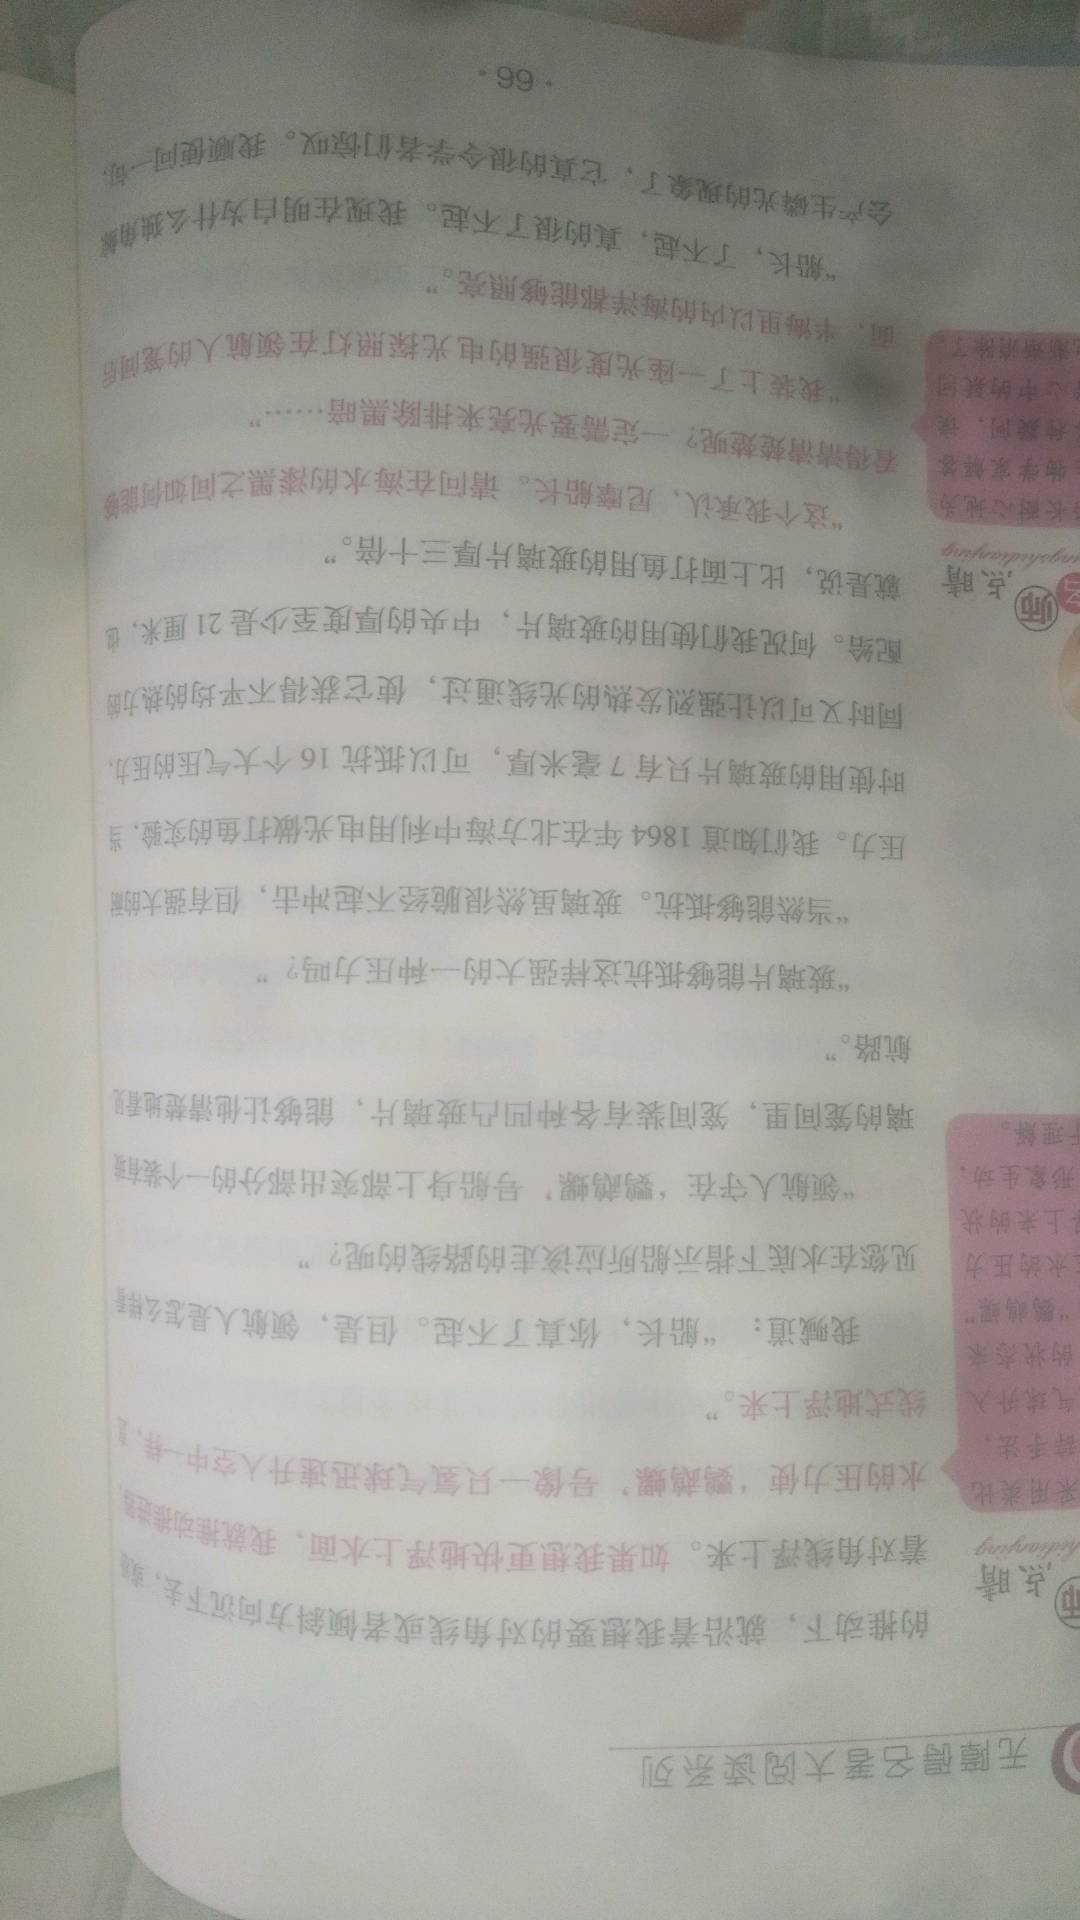 无障碍名著大阅读系列
的推动下，就沿着我想要的对角线或者倾斜方向沉下去，或沿
着对角线浮上来。如果我想更快地浮上水面，我就推动推进器，
水的压力使‘鹦鹉螺’号像一只氢气球迅速升入空中一样，直
线式地浮上来。”
我喊道：“船长，你真了不起。但是，领航人是怎么样看
见您在水底下指示船所应该走的路线的呢？”
“领航人守在‘鹦鹉螺’号船身上部突出部分的一个装有玻
璃的笼间里，笼间装有各种凹凸玻璃片，能够让他清楚地看见
航路。”
“玻璃片能够抵抗这样强大的一种压力吗？”
“当然能够抵抗。玻璃虽然很脆经不起冲击，但有强大的耐
压力。我们知道1864年在北方海中利用电光做打鱼的实验，当
时使用的玻璃片只有7毫米厚，可以抵抗16个大气压的压力，
同时又可以让强烈发热的光线通过，使它获得不平均的热力的
配给。何况我们使用的玻璃片，中央的厚度至少是21厘米，也
就是说，比上面打鱼用的玻璃片厚三十倍。”
“这个我承认，尼摩船长。请问在海水的漆黑之间如何能够
看得清清楚楚呢？一定需要光亮来排除黑暗……”
“我装上了一座光度很强的电光探照灯在领航人的笼间后
面，半海里以内的海洋都能够照亮。”
“船长，了不起，真的很了不起。我现在明白为什么独角鲸
会产生磷光的现象了，它真的很令学者们惊叹。我顺便问一句，
·66·
师
点睛
采用类比
手法，
气球升入
的状态来
“鹦鹉螺”
水的压力
上来的状
形象生动，
于理解。
名师
点睛
长耐心地为
物学家解答
疑问，读
心中的疑问
渐渐消除了。